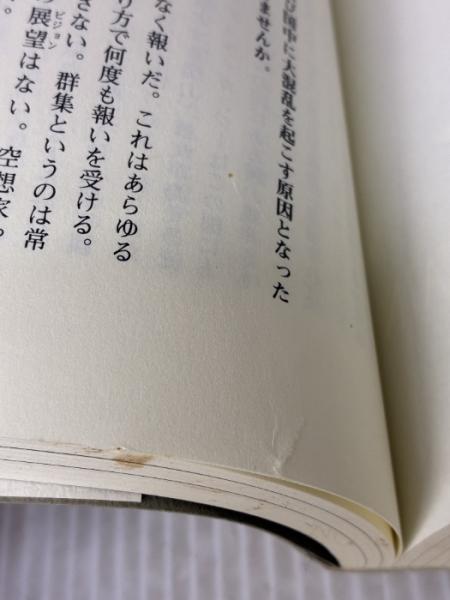 国中に大混乱を起こす原因となった
ませんか。
なく報いだ。これはあらゆる
り方で何度も報いを受ける。
さない。群集というのは常
の展望はない。空想家。
ビジョン